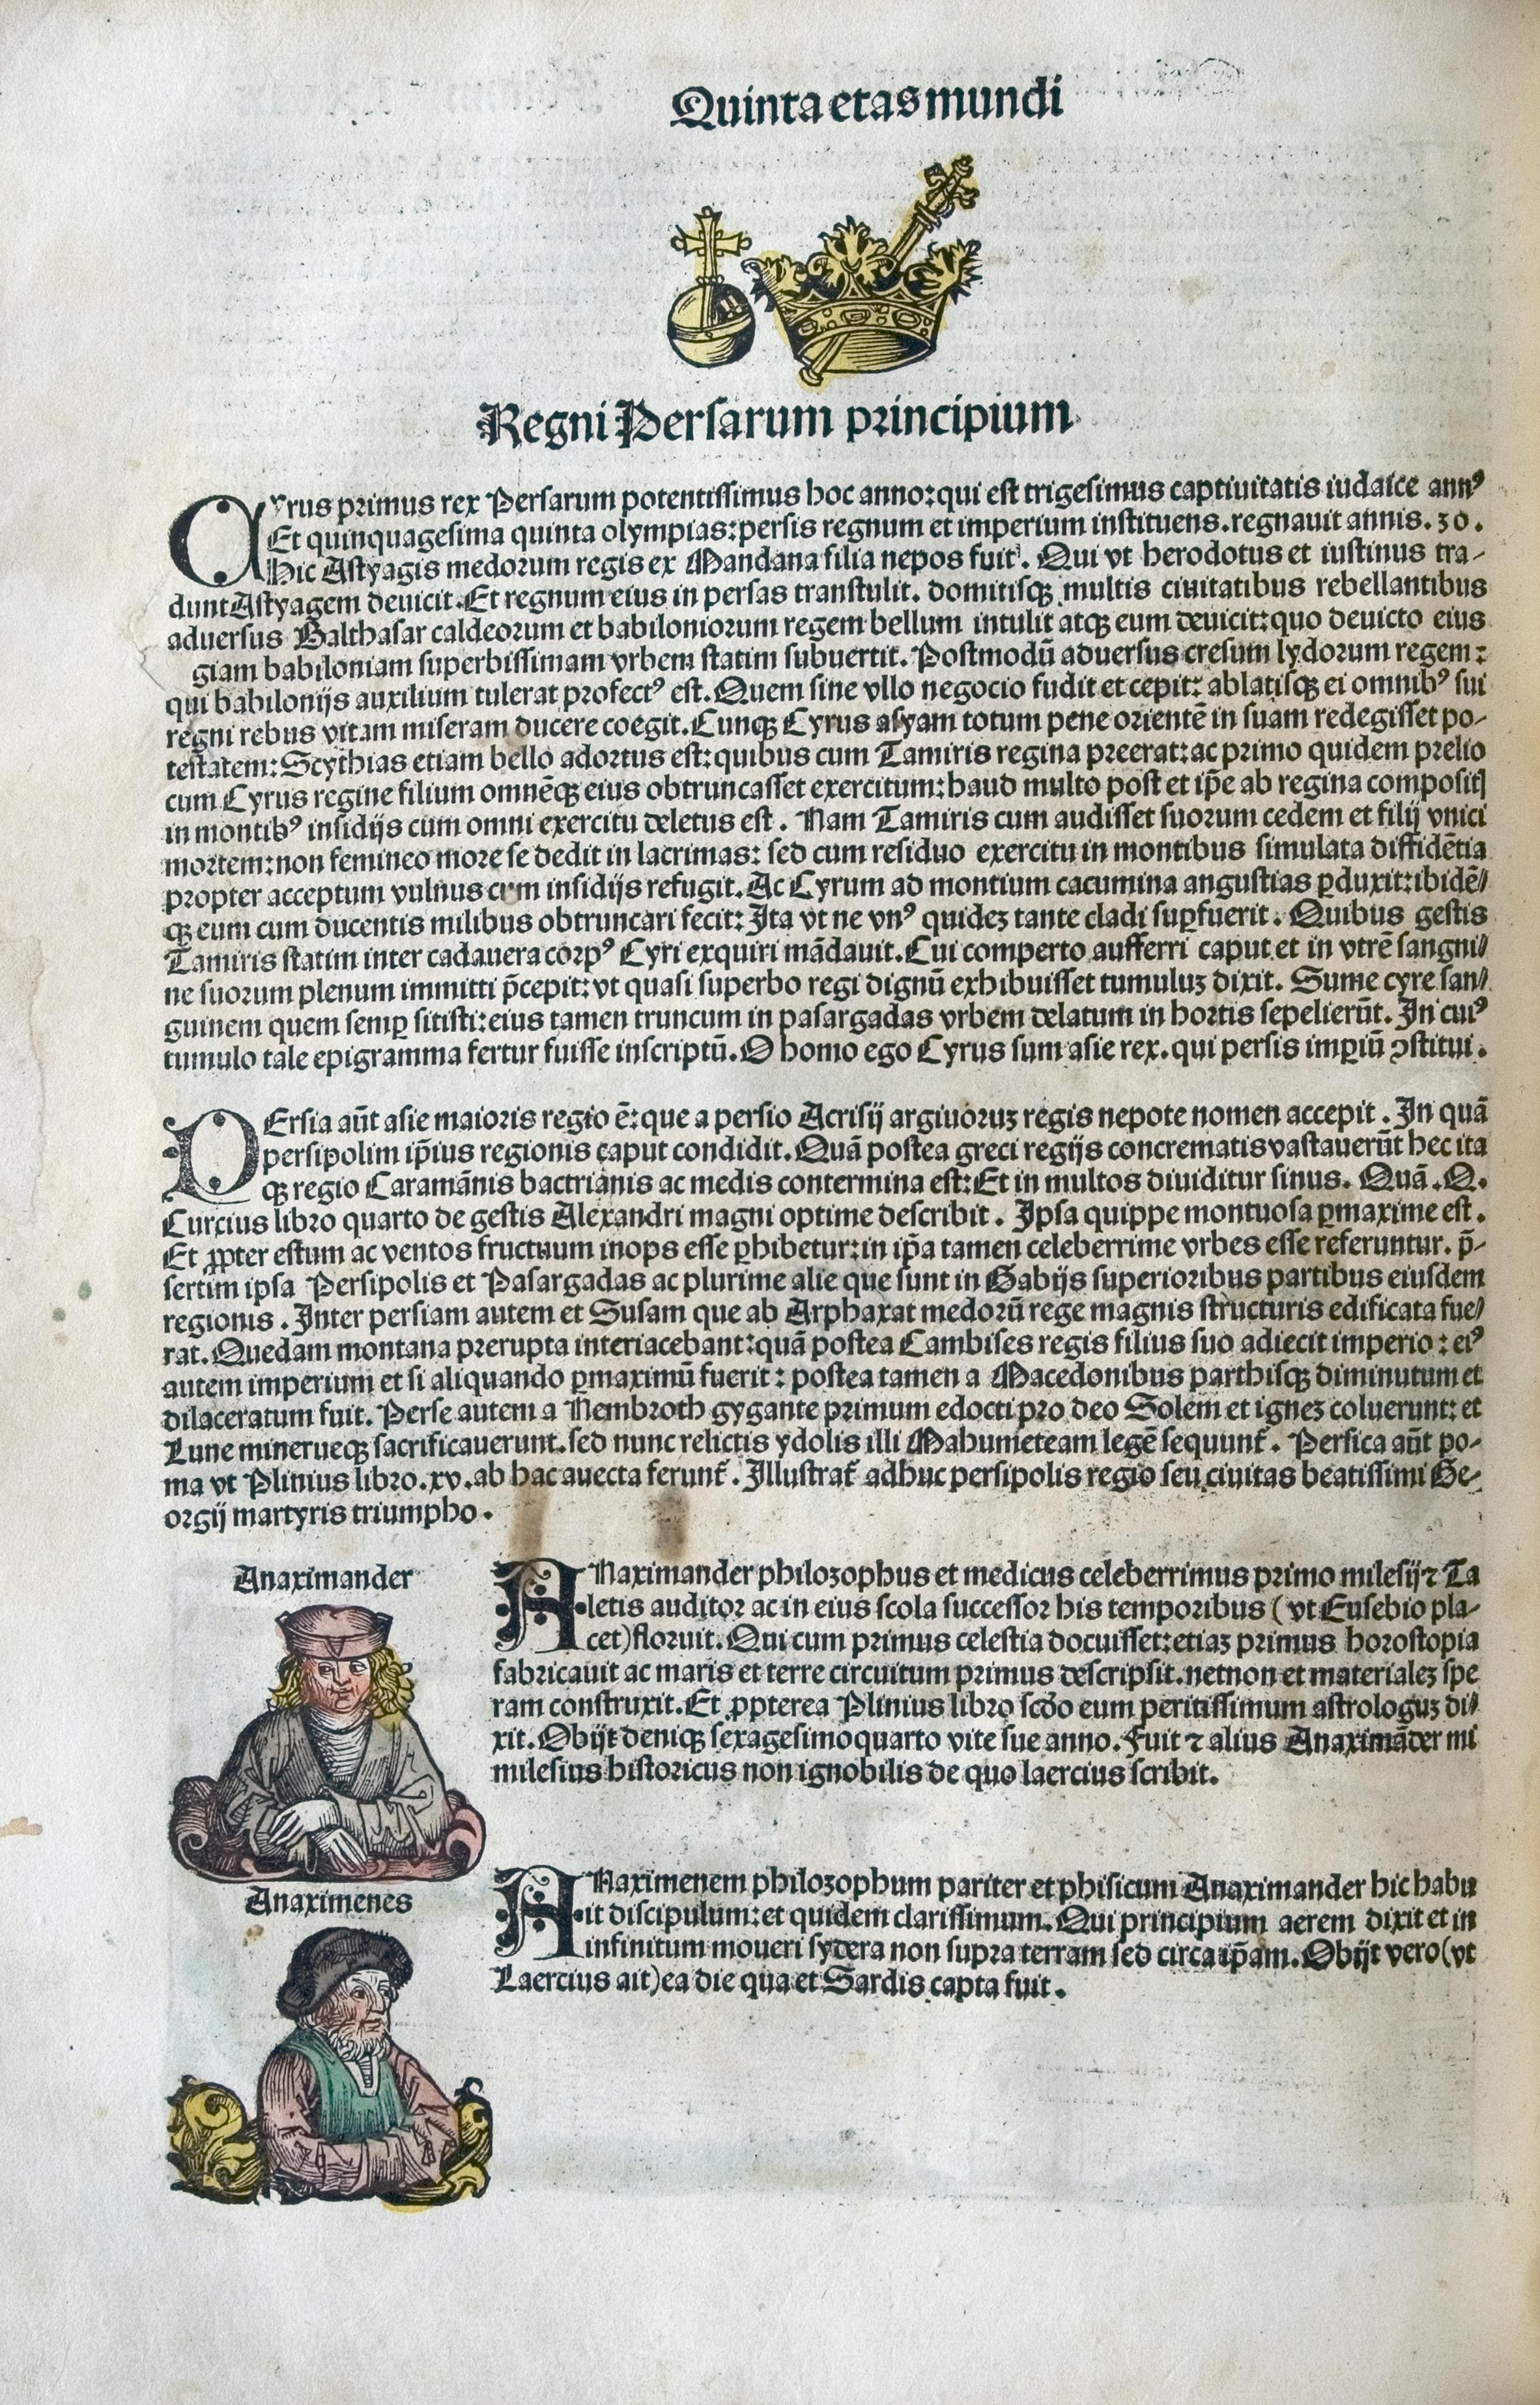 Quinta etas mundi
Regni Persarum principium
Cyrus primus rex Persarum potentissimus hoc anno: qui est trigesimus captiuitatis iudaice annꝰ
Et quinquagesima quinta olympias: persis regnum et imperium instituens. regnauit annis. 30.
Hic Astyagis medorum regis ex Mandana filia nepos fuit. Qui vt herodotus et iustinus tra-
dunt Astyagem deuicit. Et regnum eius in persas transtulit. domitisqꝫ multis ciuitatibus rebellantibus
aduersus Balthasar caldeorum et babiloniorum regem bellum intulit atqꝫ eum deuicit: quo deuicto eius
giam babiloniam superbissimam vrbem statim subuertit. Postmodū aduersus cresum lydorum regem:
qui babilonijs auxilium tulerat profectꝰ est. Quem sine vllo negocio fudit et cepit: ablatisqꝫ ei omnibꝰ sui
regni rebus vitam miseram ducere coegit. Cunqꝫ Cyrus asyam totum pene orientē in suam redegisset po-
testatem: Scythias etiam bello adortus est: quibus cum Tamiris regina preerat: ac primo quidem prelio
cum Cyrus regine filium omnēqꝫ eius obtruncasset exercitum: haud multo post et ip̄e ab regina compositꝭ
in montibꝰ insidijs cum omni exercitu deletus est. Nam Tamiris cum audisset suorum cedem et filij vnici
mortem: non femineo more se dedit in lacrimas: sed cum residuo exercitu in montibus simulata diffidētia
propter acceptum vulnus cum insidijs refugit. Ac Cyrum ad montium cacumina angustias ꝑduxit: ibidē⸗
qꝫ eum cum ducentis milibus obtruncari fecit: Ita vt ne vnꝰ quidez tante cladi suꝑfuerit. Quibus gestis
Tamiris statim inter cadauera corpꝰ Cyri exquiri mādauit. Cui comperto aufferri caput et in vtrē sangni⸗
ne suorum plenum immitti p̄cepit: vt quasi superbo regi dignū exhibuisset tumuluz dixit. Sume cyre san⸗
guinem quem semꝑ sitisti: eius tamen truncum in pasargadas vrbem delatum in hortis sepelierūt. In cuiꝰ
tumulo tale epigramma fertur fuisse inscriptū. O homo ego Cyrus sum asie rex. qui persis imꝑiū ꝯstitui.
PErsia aūt asie maioris regio ē: que a persio Acrisij argiuoruz regis nepote nomen accepit. In quā
persipolim ip̄ius regionis caput condidit. Quā postea greci regijs concrematis vastauerūt hec ita
qꝫ regio Caramānis bactrianis ac medis contermina est: Et in multos diuiditur sinus. Quā. Q.
Curcius libro quarto de gestis Alexandri magni optime describit. Ipsa quippe montuosa ꝑmaxime est.
Et ꝓpter estum ac ventos fructuum inops esse ꝑhibetur: in ip̄a tamen celeberrime vrbes esse referuntur. p̄-
sertim ipsa Persipolis et Pasargadas ac plurime alie que sunt in Gabijs superioribus partibus eiusdem
regionis. Inter persiam autem et Susam que ab Arphaxat medorū rege magnis structuris edificata fue⸗
rat. Quedam montana prerupta interiacebant: quā postea Cambises regis filius suo adiecit imperio: eiꝰ
autem imperium et si aliquando ꝑmaximū fuerit: postea tamen a Macedonibus parthisqꝫ diminutum et
dilaceratum fuit. Perse autem a Nembroth gygante primum edocti pro deo Solem et ignez coluerunt: et
Lune minerueqꝫ sacrificauerunt. sed nunc relictis ydolis illi Mahumeteam legē sequunt᷑. Persica aūt po-
ma vt Plinius libro. xv. ab hac auecta ferunt᷑. Illustrat᷑ adhuc persipolis regio seu ciuitas beatissimi Ge-
orgij martyris triumpho.
Anaximander
ANaximander philozophus et medicus celeberrimus primo milesij ⁊ Ta
letis auditor ac in eius scola successor his temporibus (vt Eusebio pla-
cet) floruit. Qui cum primus celestia docuisset: etiaz primus horostopia
fabricauit ac maris et terre circuitum primus descripsit. netnon et materialez spe
ram construxit. Et ꝓpterea Plinius libro scḋo eum peritissimum astrologuz di⸗
xit. Obijt deniqꝫ sexagesimoquarto vite sue anno. Fuit ⁊ alius Anaximāder mi
milesius historicus non ignobilis de quo laercius scribit.
Anaximenes
ANaximenem philozophum pariter et phisicum Anaximander hic habu
it discipulum: et quidem clarissimum. Qui principium aerem dixit et in
infinitum moueri sydera non supra terram sed circa ip̄am. Obijt vero (vt
Laercius ait) ea die qua et Sardis capta fuit.